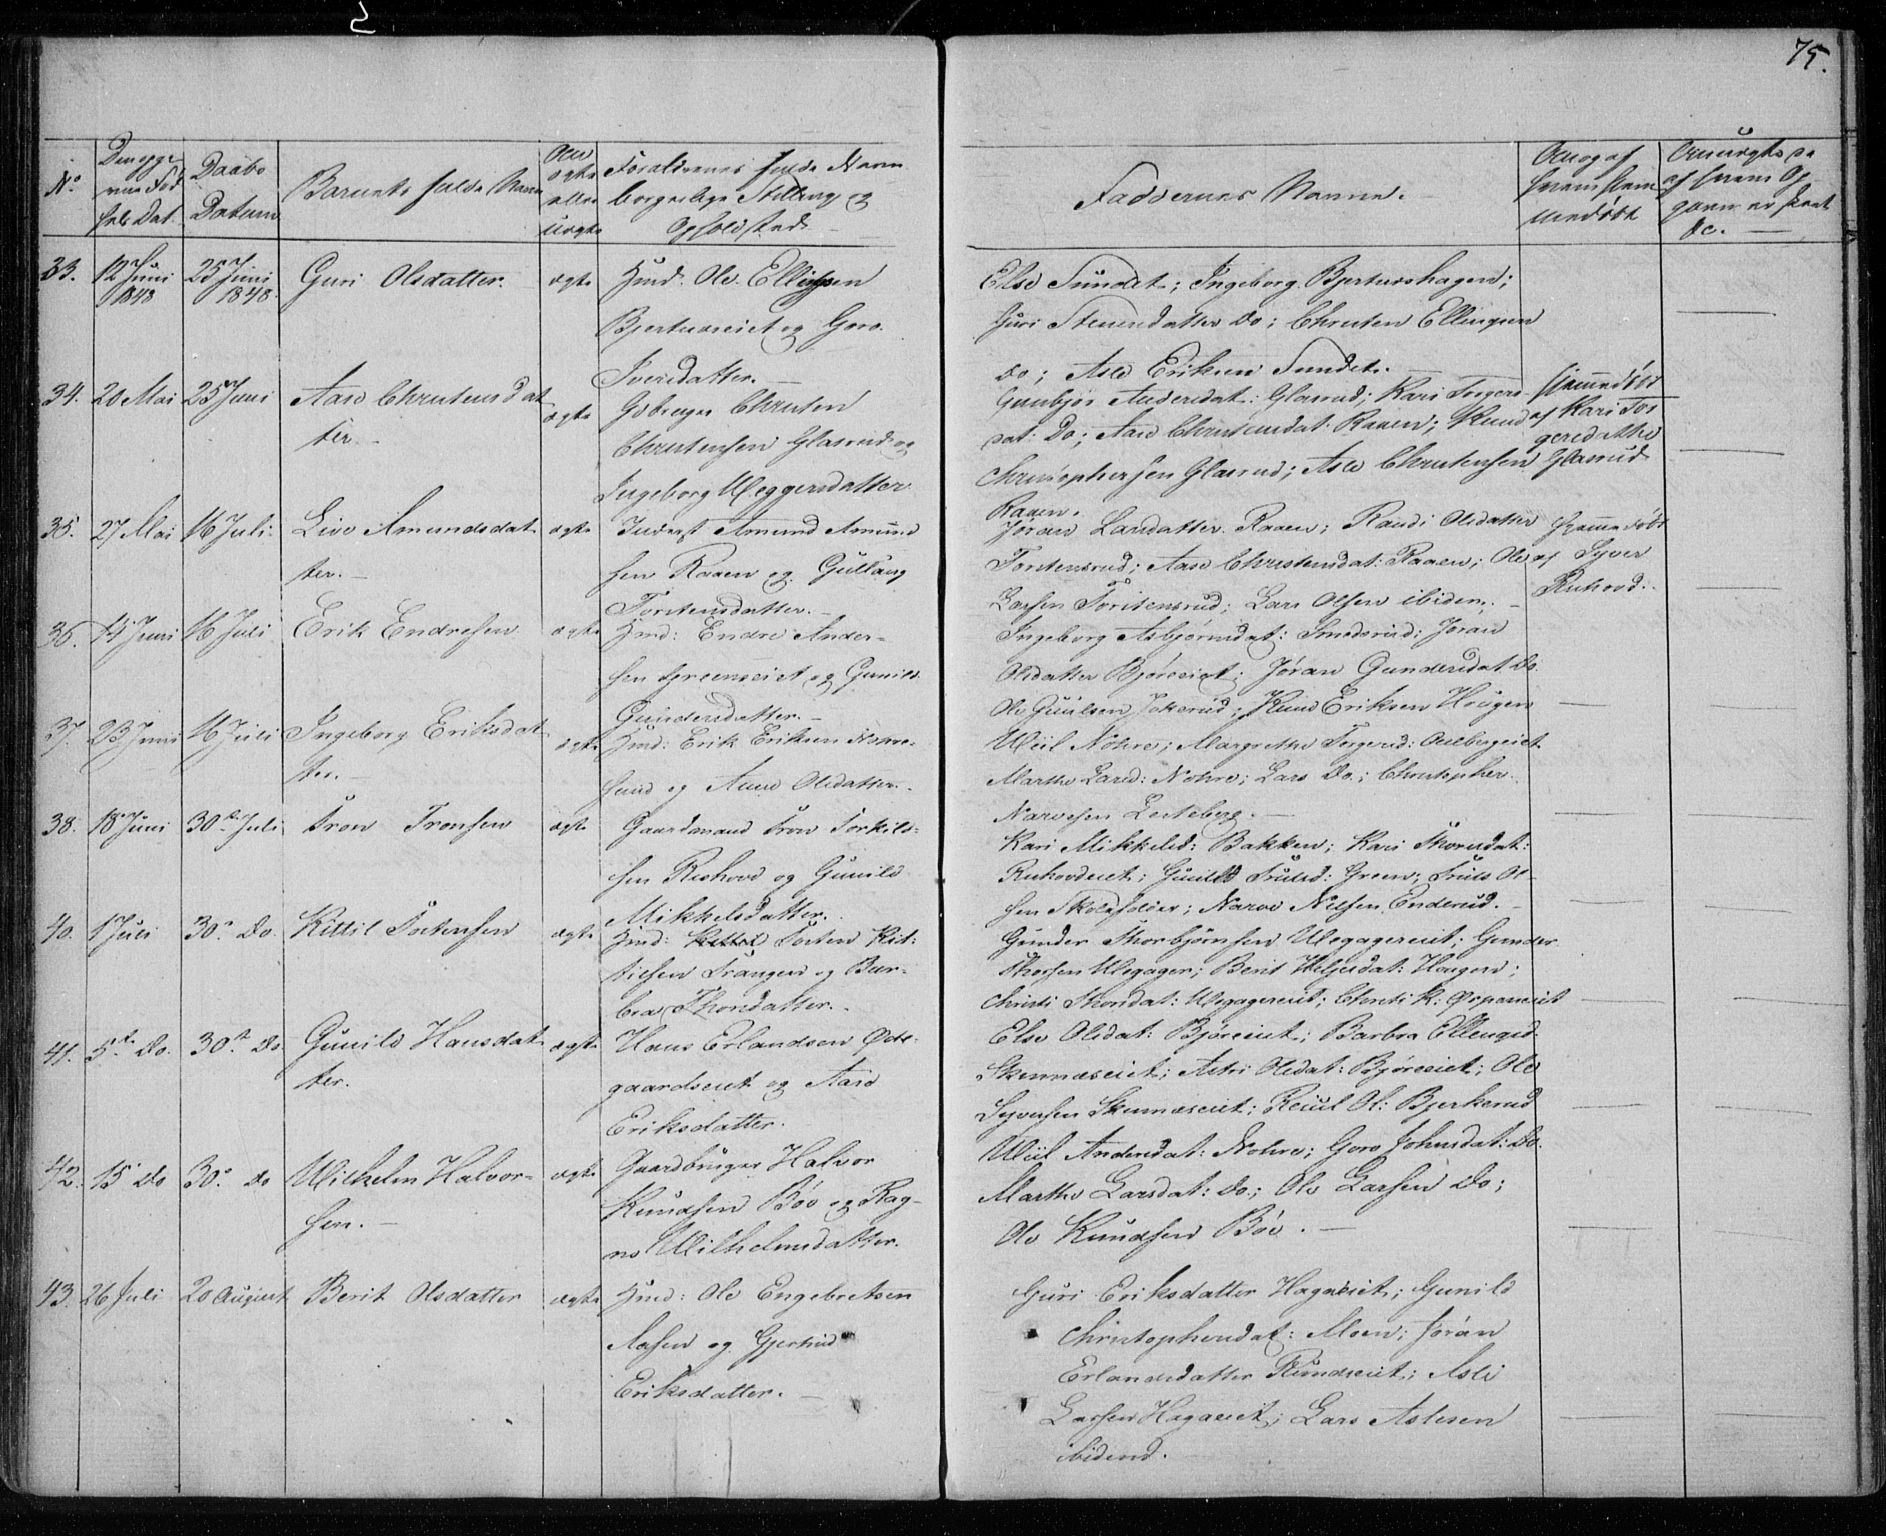 75.
No
Den opgi
vne Fød
sels Dat.
Daabs
Datum
Barnets fulde Navn
Om
ægte
eller
uægte
Forældrenes fulde Navn
borgerlige Stilling og
Opholdsted
Faddernes Navne.
Om og af
hvem hjem
medøbt
33. 12 Juni 1848 25 Juni 1848. Guri Olsdatter. ægte Hmd. Ole Ellingsen
Bjertnæseiet og Goro
Iversdatter.
Else Sundet; Ingeborg Bjertnæshagen;
Guri Steensdatter Do; Christen Ellingsen
Do; Asle Eriksen Sundet.
34. 20 Mai 25 Juni Aase Christensdat
ter. ægte Gdbruger Christen
Christensen Glasrud og
Ingeborg
Gunbjør Andersdat: Glasrud; Kari Torgers
dat: Do; Aase Christensdat: Raaen; Knud
Christophersen Glasrud; Asle Christensen
Raaen.
Hjemmedøbt
af Kari Tor
gersdatter
Glasrud
35. 27 Mai 16 Juli. Live Amundsdat
ter. ægte Inderst Amund Amund
sen Raaen og Gullaug
Torstensdatter.
Jøran Larsdatter Raaen; Randi Olsdatter
Torstensrud; Aase Christensdat: Raaen; Ole
Larsen Torstensrud; Lars Olsen ibidem.
Hjemmedøbt
af Syver
Ruhovd.
36. 14 Juni 16 Juli Erik Endresen ægte Hmd: Endre Ander-
sen Greenseiet og Gunild
Gundersdatter.
Ingeborg Asbjørnsdat: Smedsrud; Jøran
Olsdatter Bjøreeiet; Jøran Gundersdat Do.
Ole Juulsen Jokerud; Knud Eriksen Haugen
37. 23 Juni 16 Juli Ingeborg Eriksdat
ter. ægte Hmd: Erik Eriksen
og Anne Olsdatter.
Nohre; Margrethe
Marthe Larsd: Nohre; Lars Do.; Christopher
Narvesen Lesteberg.
38. 18 Juni 30te Juli Tron Tronsen ægte Gaardmand Tron Torkild-
sen Ruhovd og Gunild
Mikkelsdatter.
Kari Mikkelsd: Bakken; Kari Thorsdat:
Ruhovdeiet; Gunild Trulsd: Green; Truls Ol-
sen Skoleholder; Narve Nilsen Enderud.
40. 1 Juli 30te Do. Kittil Tostensen ægte Hmd: Tosten Kit-
tilsen Trangen og Bar-
bra Thorsdatter.
Gunder Thorbjørnsen Ulegagereiet; Gunder
Thorsen Ulegager; Berit Helgesdat: Haugen;
Christi Thorsdat: Ulegagereiet; Christi K:
41. 5te Do. 30te Do Gunild Hansdat
ter. ægte Hans Erlandsen Øde-
gaardseiet og Aase
Eriksdatter.
Else Olsdat: Bjøreeiet; Barbra Ellingsd:
Skinnæseiet; Astri Olsdat: Bjøreeiet; Ole
Syversen Skinnæseiet; Ol: Bjerkerud
42. 15 Do 30te Do Wilhelm Halvor-
sen. ægte Gaardbruger Halvor
Knudsen Böe og Rag-
ne Wilhelmsdatter.
Andersdat: Nohre; Goro Johnsdat: Do.
Marthe Larsdat: Do; Ole Larsen Do;
Ole Knudsen Böe.
43. 26 Juli 20 August Berit Olsdatter ægte Hmd: Ole Engebretsen
Aasen og Gjertrud
Eriksdatter.
Guri Eriksdatter Hagaeiet; Gunild
Christophersdat: Moen; Jøran
Erlandsdatter Rundseiet; Asle
Larsen Hagaeiet; Lars Aslesen
ibidem.